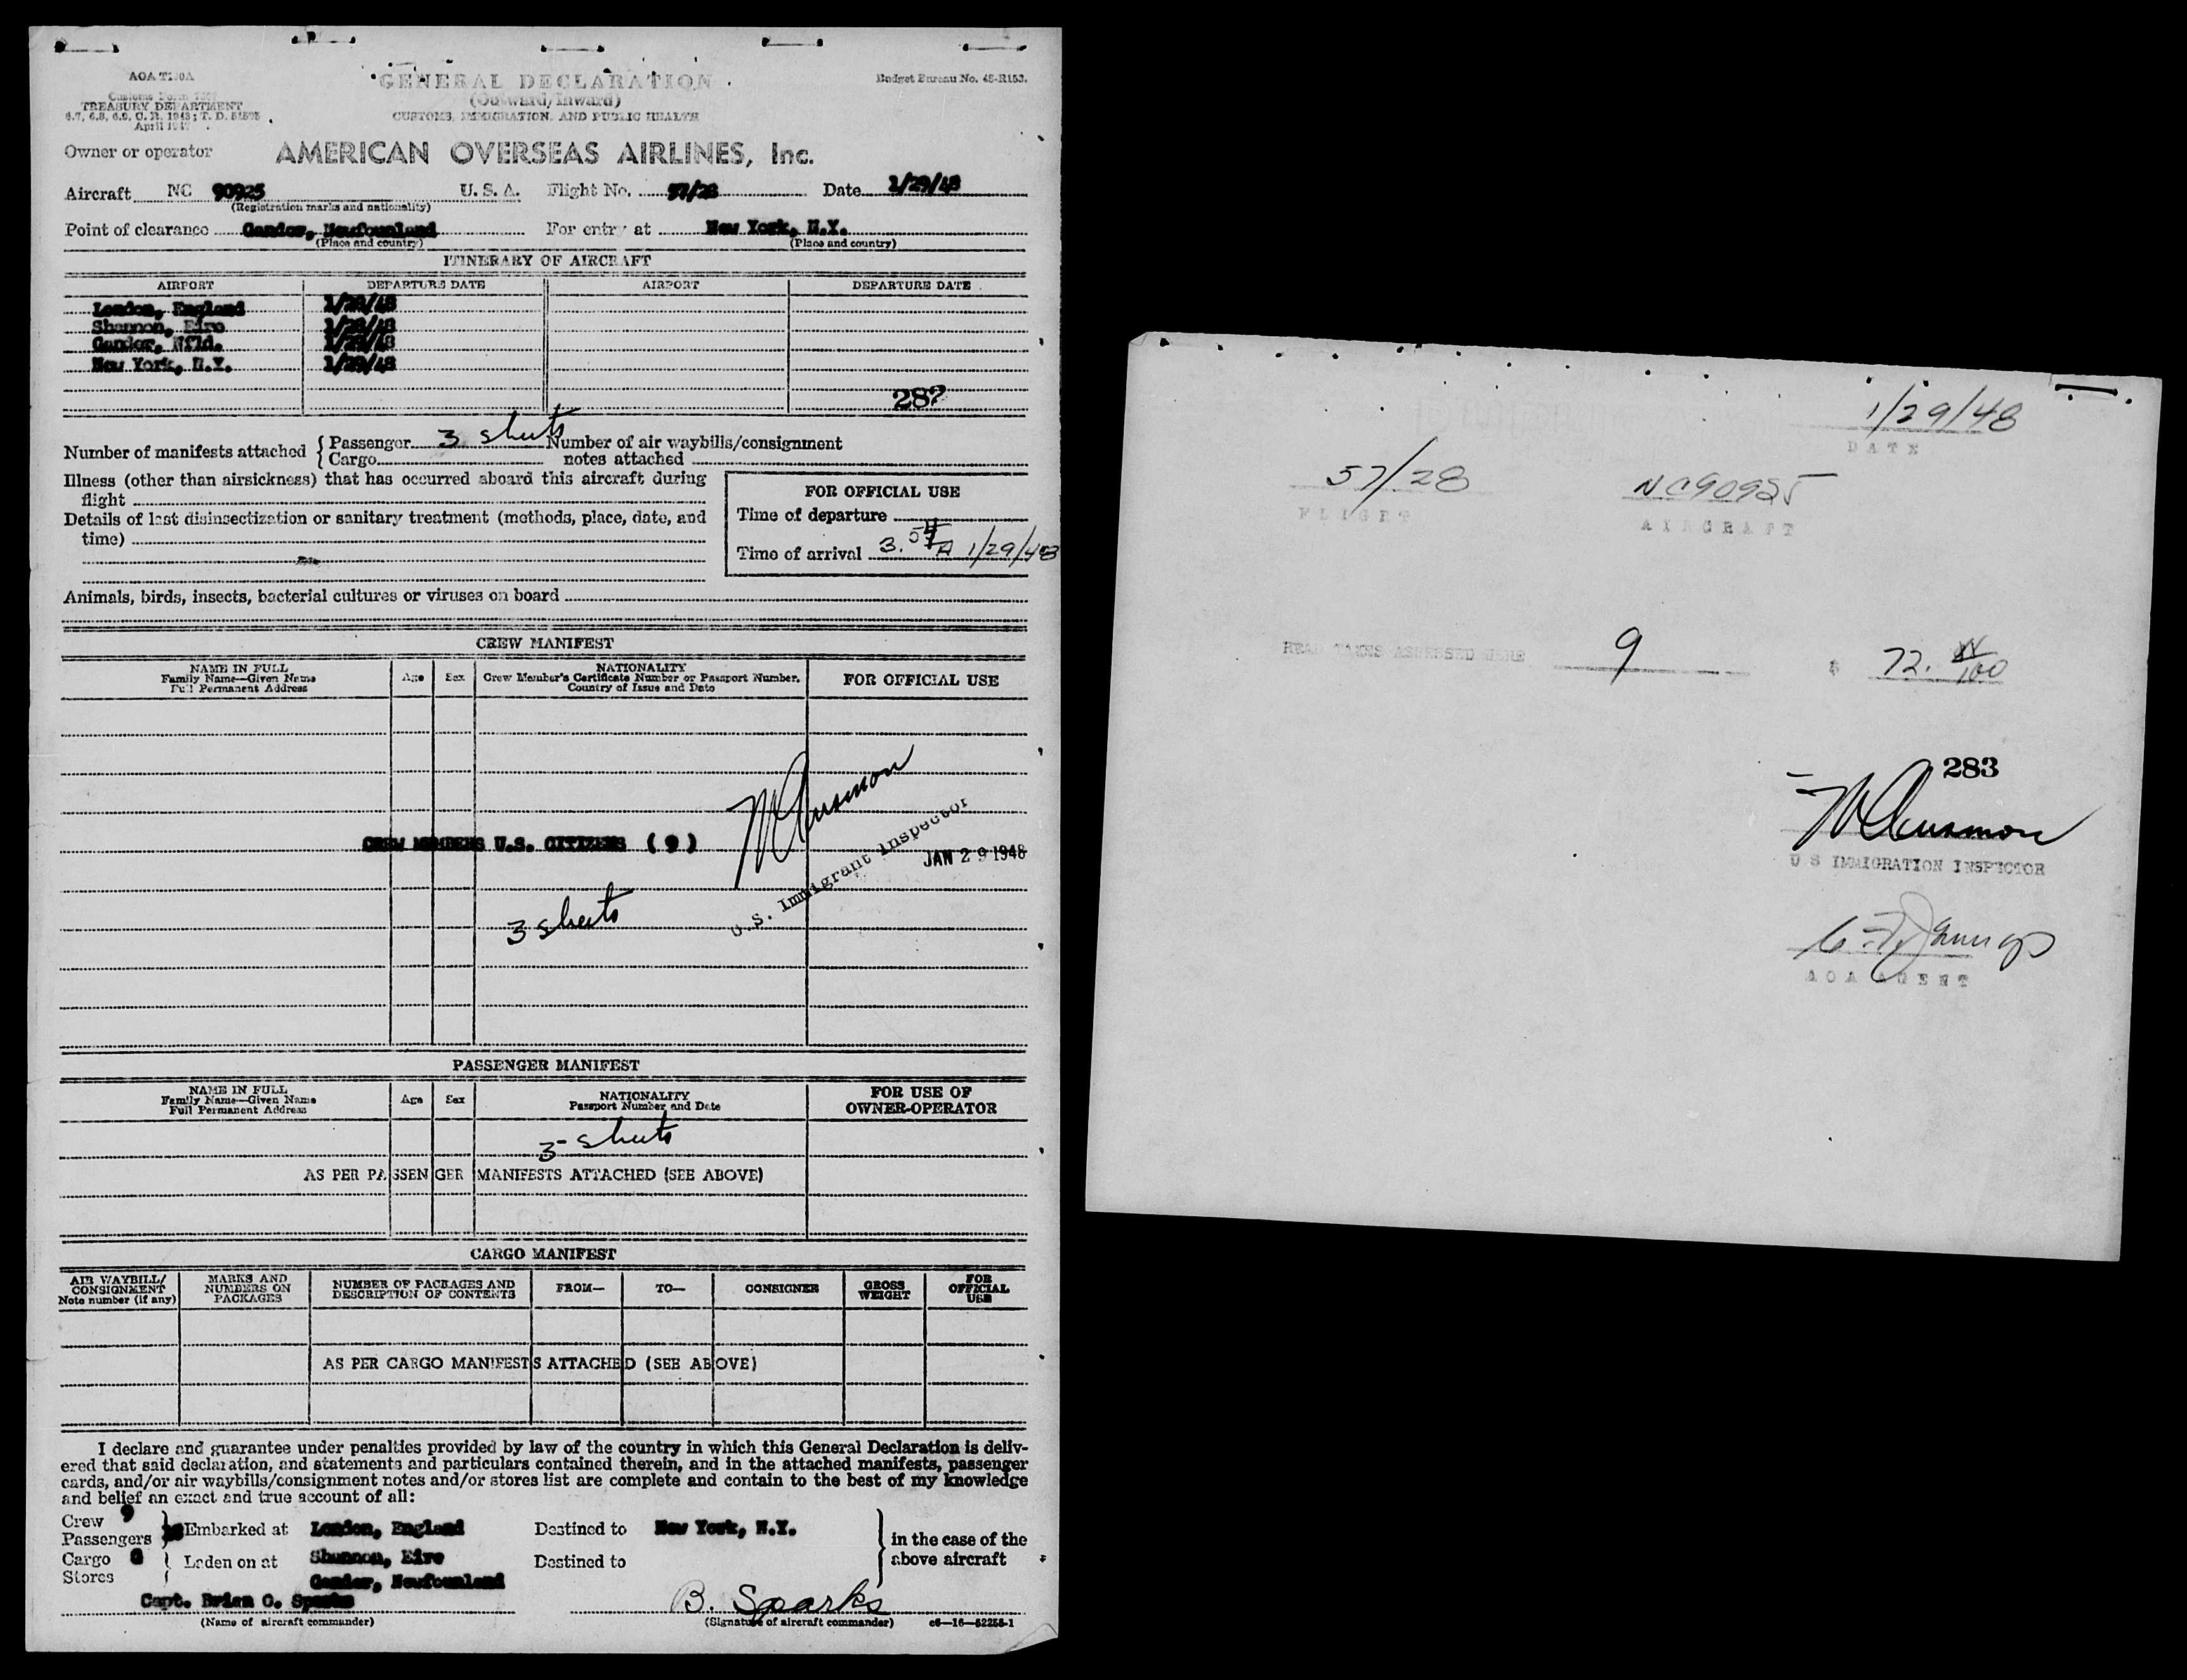 AOA T100A
Customs Form 7507
TREASURY DEPARTMENT
6.7, 6.8, 6.9, C. R. 1943; T. D. 51595
April 1947
GENERAL DECLARATION
(Outward/Inward)
CUSTOMS, IMMIGRATION, AND PUBLIC HEALTH
Budget Bureau No. 48-R153.
Owner or operator AMERICAN OVERSEAS AIRLINES, Inc.
Aircraft NC 90925 U. S. A. Flight No. 57/28 Date 1/29/48
(Registration marks and nationality)
Point of clearance Gander, Newfounland For entry at New York, N.Y.
(Place and country) (Place and country)
ITINERARY OF AIRCRAFT
AIRPORT DEPARTURE DATE AIRPORT DEPARTURE DATE
London, England 1/28/48
Shannon, Eire 1/28/48
Gander, Nfld. 1/29/48
New York, N.Y. 1/29/48
282
Number of manifests attached { Passenger 3 sheets Number of air waybills/consignment
Cargo notes attached
Illness (other than airsickness) that has occurred aboard this aircraft during
flight
Details of last disinsectization or sanitary treatment (methods, place, date, and
time)
FOR OFFICIAL USE
Time of departure
Time of arrival 3.54 A 1/29/48
Animals, birds, insects, bacterial cultures or viruses on board
CREW MANIFEST
NAME IN FULL
Family Name—Given Name
Full Permanent Address
Age Sex
NATIONALITY
Crew Member's Certificate Number or Passport Number,
Country of Issue and Date
FOR OFFICIAL USE
CREW MEMBERS U.S. CITIZENS (9)
U.S. Immigrant Inspector
JAN 29 1948
3 sheets
PASSENGER MANIFEST
NAME IN FULL
Family Name—Given Name
Full Permanent Address
Age Sex
NATIONALITY
Passport Number and Date
FOR USE OF
OWNER-OPERATOR
3 - sheets
AS PER PASSENGER MANIFESTS ATTACHED (SEE ABOVE)
CARGO MANIFEST
AIR WAYBILL/
CONSIGNMENT
Note number (if any)
MARKS AND
NUMBERS ON
PACKAGES
NUMBER OF PACKAGES AND
DESCRIPTION OF CONTENTS
FROM— TO— CONSIGNEE
GROSS
WEIGHT
FOR
OFFICIAL
USE
AS PER CARGO MANIFESTS ATTACHED (SEE ABOVE)
I declare and guarantee under penalties provided by law of the country in which this General Declaration is deliv-
ered that said declaration, and statements and particulars contained therein, and in the attached manifests, passenger
cards, and/or air waybills/consignment notes and/or stores list are complete and contain to the best of my knowledge
and belief an exact and true account of all:
Crew 9
Passengers } Embarked at London, England Destined to New York, N.Y.
Cargo } Laden on at Shannon, Eire Destined to
Stores Gander, Newfounland
} in the case of the
above aircraft
Capt. Brian O. Sparks B. Sparks
(Name of aircraft commander) (Signature of aircraft commander) c6—16—52255-1
1/29/48
DATE
57/28 NC90925
FLIGHT AIRCRAFT
HEAD TAXES ASSESSED WERE 9 $ 72. XX/100
283
U S IMMIGRATION INSPECTOR
AOA AGENT